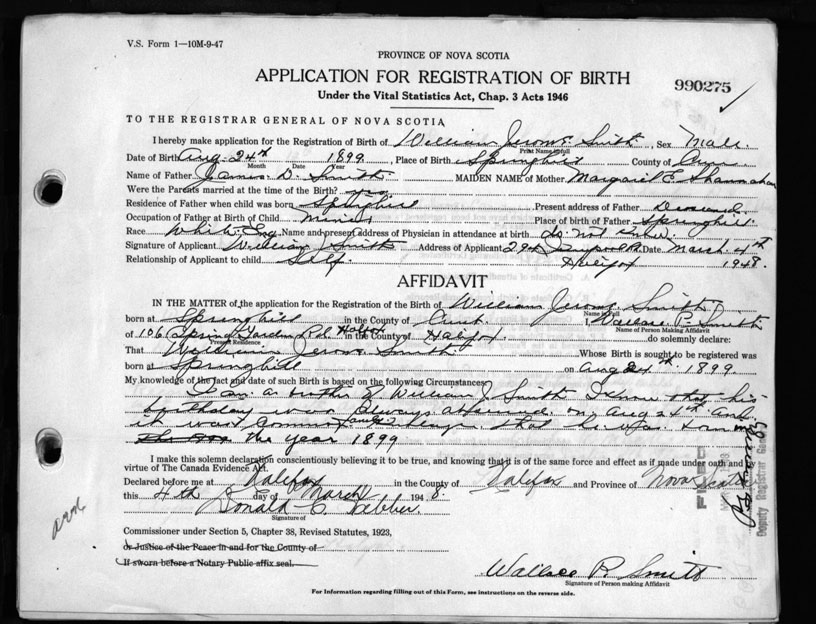 V.S. Form 1—10M-9-47
PROVINCE OF NOVA SCOTIA
APPLICATION FOR REGISTRATION OF BIRTH
990275
Under the Vital Statistics Act, Chap. 3 Acts 1946
TO THE REGISTRAR GENERAL OF NOVA SCOTIA
I hereby make application for the Registration of Birth of William Jerome Smith, Sex Male
Print Name in full
Date of Birth Aug. 24th 1899, Place of Birth Springhill County of
Month Date Year
Name of Father James D. Smith MAIDEN NAME of Mother Margaret E. Shannahan
Were the Parents married at the time of the Birth? yes
Residence of Father when child was born Springhill Present address of Father Deceased
Occupation of Father at Birth of Child miner Place of birth of Father Springhill.
Race White Eng Name and present address of Physician in attendance at birth do not know.
Signature of Applicant William J Smith Address of Applicant Date March 4th
Relationship of Applicant to child Self. Halifax 1948.
AFFIDAVIT
IN THE MATTER of the application for the Registration of Birth of William Jerome Smith
Name in Full
born at Springhill in the County of I, Wallace R Smith
Name of Person Making Affidavit
of 106 Spring Garden Rd. Halifax in the County of Halifax do solemnly declare:
Present Residence
That William Jerome Smith Whose Birth is sought to be registered was
born at Springhill on Aug 24th 1899.
My knowledge of the fact and date of such Birth is based on the following Circumstances:
I am a brother of William J. Smith I know that his
birthday was always observed on Aug 24th and
it was common family that he was born
the year 1899
I make this solemn declaration conscientiously believing it to be true, and knowing that it is of the same force and effect as if made under oath and by
virtue of The Canada Evidence Act.
Declared before me at Halifax in the County of Halifax and Province of Nova Scotia
this 4th day of March 1948.
Donald C. Webber
Signature of
Commissioner under Section 5, Chapter 38, Revised Statutes, 1923,
or Justice of the Peace in and for the County of
If sworn before a Notary Public affix seal.
Wallace R Smith
Signature of Person making Affidavit
For Information regarding filling out of this Form, see instructions on the reverse side.
FILED
Deputy Registrar